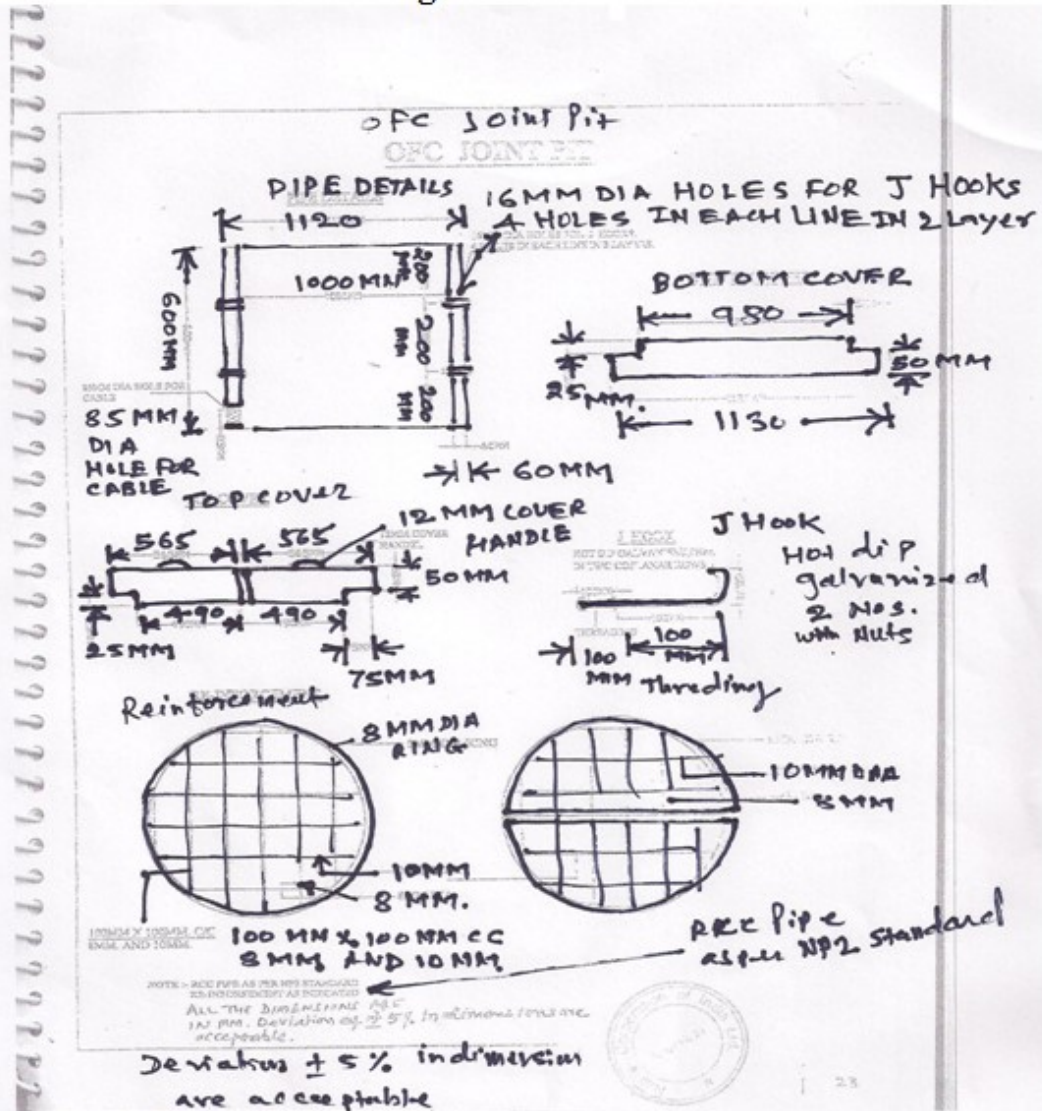 OFC Joint Pit
OFC JOINT PIT
PIPE DETAILS
1120
16MM DIA HOLES FOR J HOOKS
4 HOLES IN EACH LINE IN 2 Layer
600MM
1000MM
200 MM
200 MM
200 MM
85MM
DIA
HOLE FOR
CABLE
60MM
BOTTOM COVER
980
25MM.
50MM
1130
TOP COVER
565
565
12MM COVER
HANDLE
50MM
490
490
25MM
75MM
J HOOK
J Hook
Hot dip
galvanized
2 Nos.
with Nuts
100
MM
100
MM
Threding
Reinforcement
8MM DIA
RING
10MM
8 MM.
100 MM X 100MM CC
8MM AND 10MM
100MM X 100MM C/C
8MM. AND 10MM.
10MM DIA
8 MM
RCC Pipe
as per NP2 Standard
ALL THE DIMENSIONS ARE
IN MM. Deviation of ± 5% in dimensions are
acceptable.
Deviation ± 5% in dimension
are acceptable
23